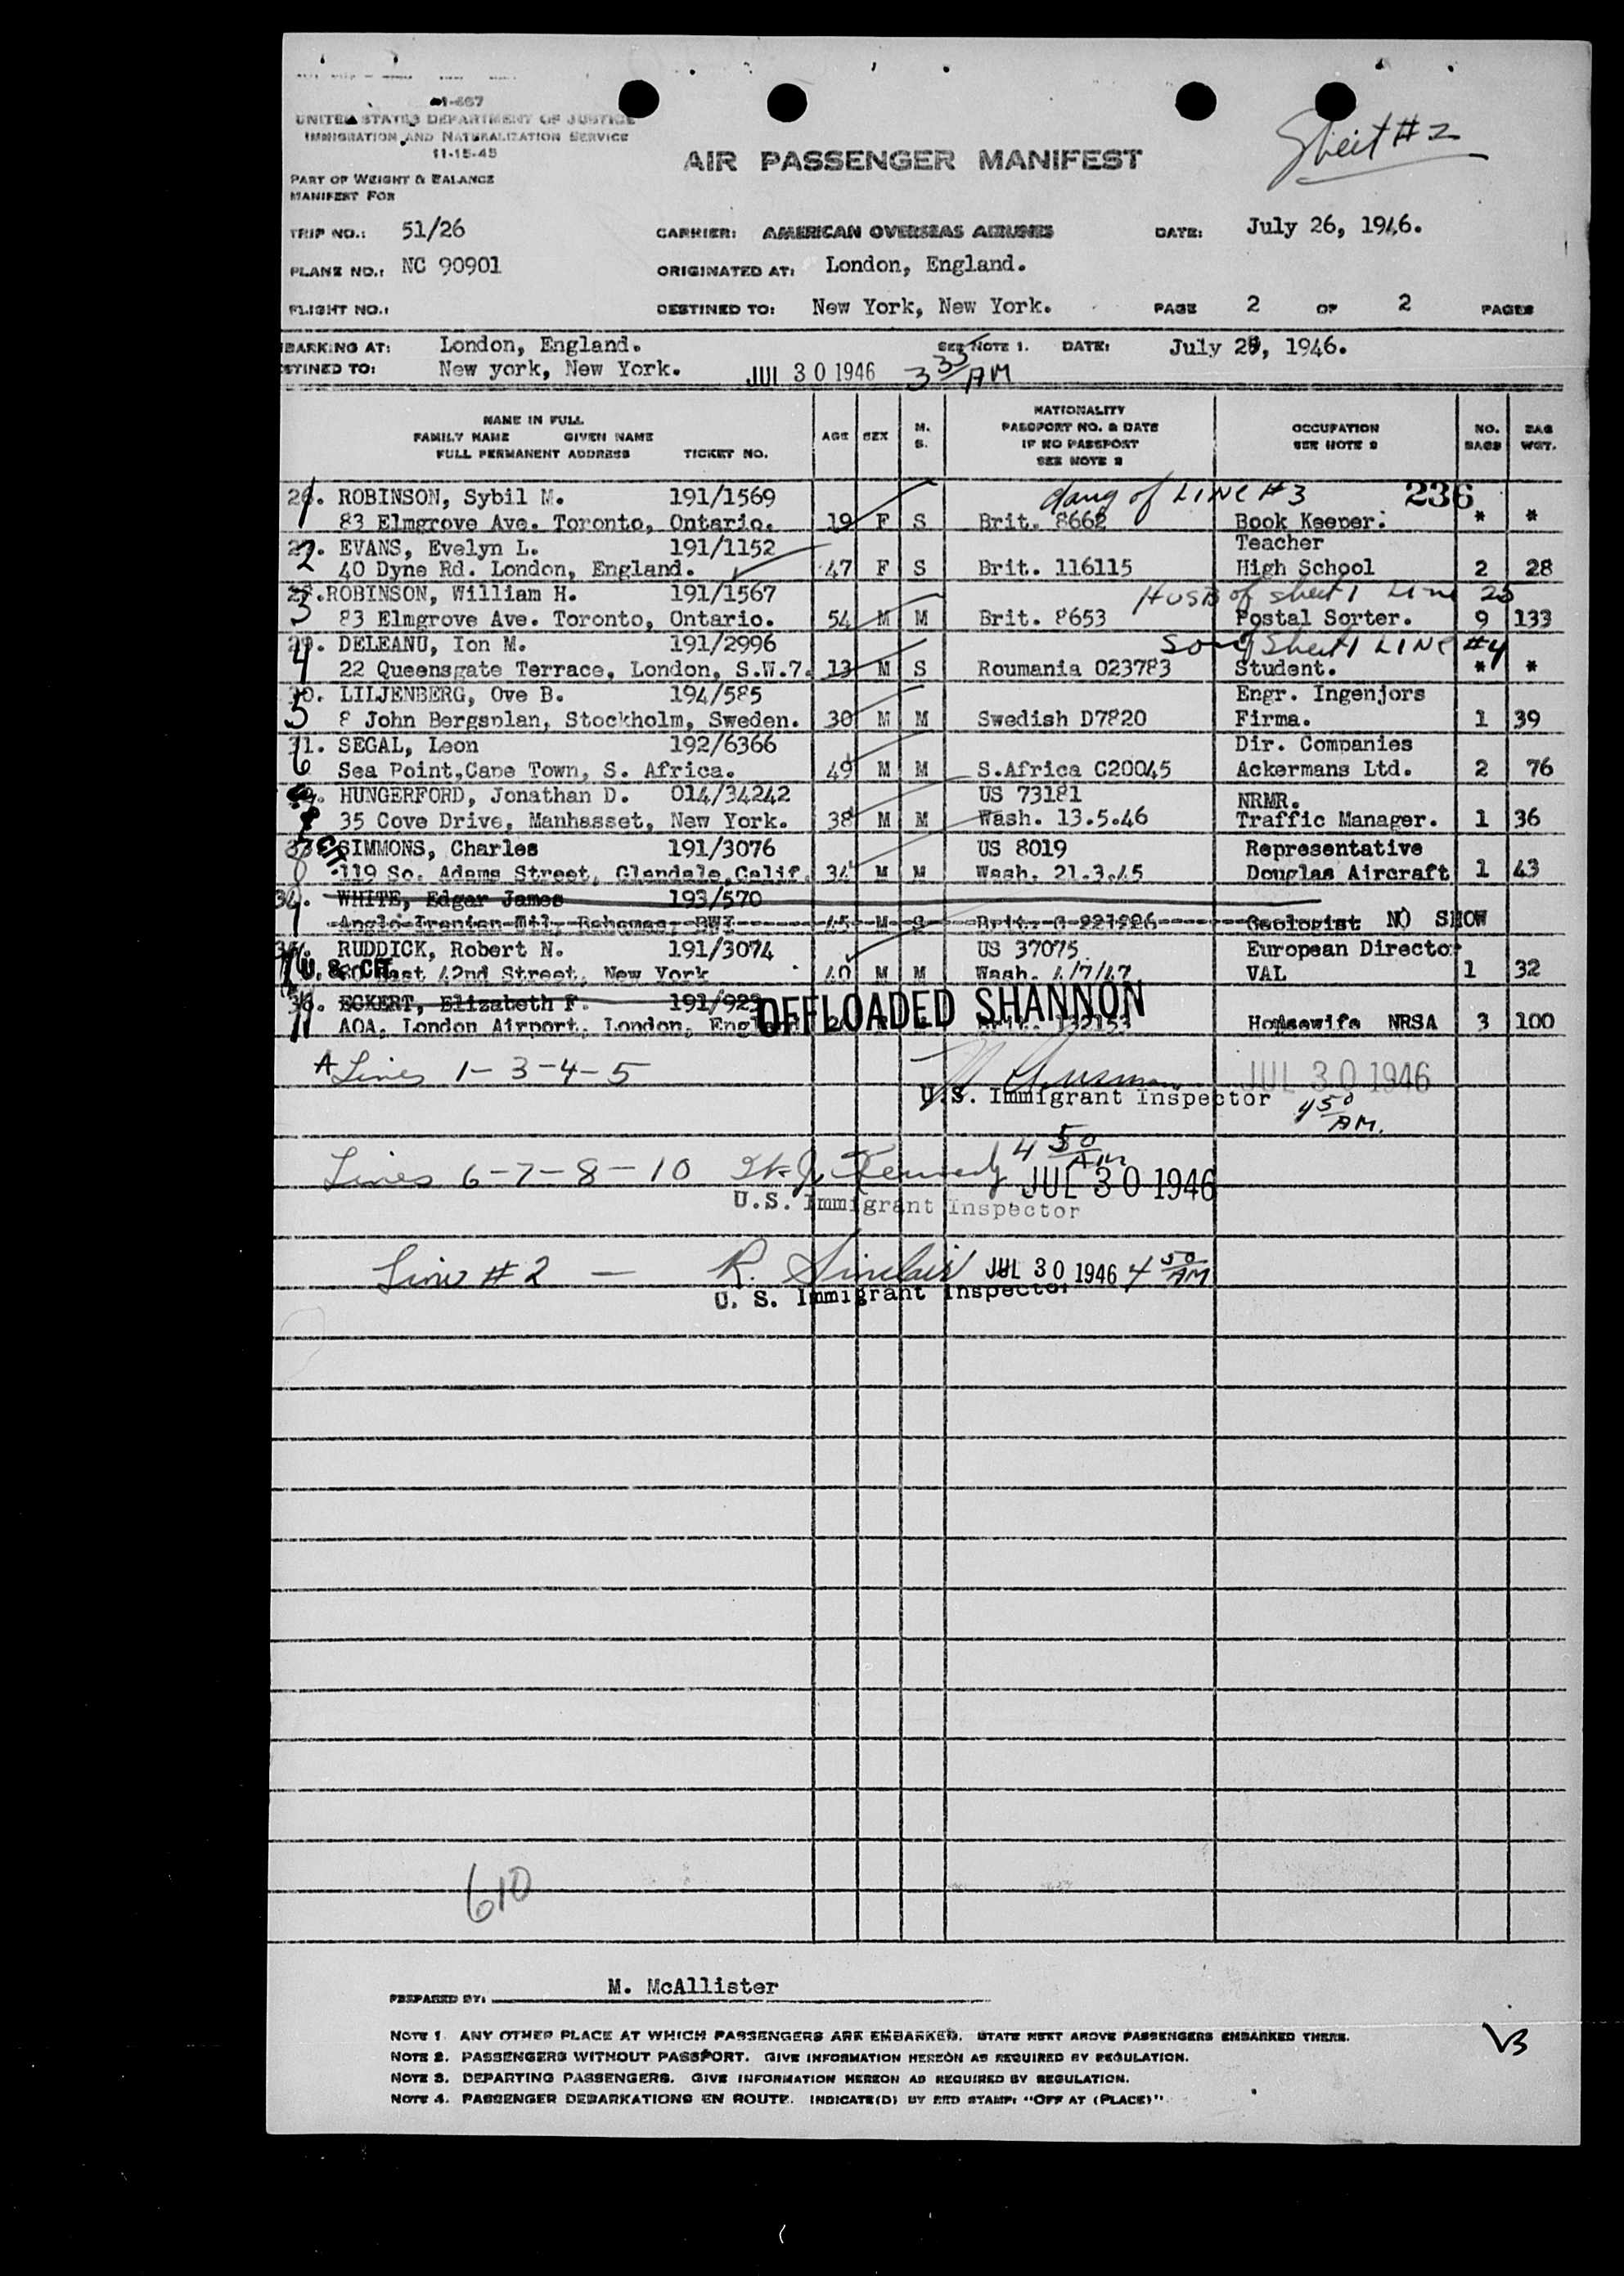 1-667
UNITED STATES DEPARTMENT OF JUSTICE
IMMIGRATION AND NATURALIZATION SERVICE
11-15-45
Sheet #2
AIR PASSENGER MANIFEST
PART OF WEIGHT & BALANCE
MANIFEST FOR
TRIP NO.: 51/26 CARRIER: AMERICAN OVERSEAS AIRLINES DATE: July 26, 1946.
PLANE NO.: NC 90901 ORIGINATED AT: London, England.
FLIGHT NO.: DESTINED TO: New York, New York. PAGE 2 OF 2 PAGES
BARKING AT: London, England. SEE NOTE 1. DATE: July 29, 1946.
STINED TO: New york, New York. JUL 30 1946 3 35 AM
NAME IN FULL
FAMILY NAME GIVEN NAME
FULL PERMANENT ADDRESS TICKET NO.
AGE SEX M. S.
NATIONALITY
PASSPORT NO. & DATE
IF NO PASSPORT
SEE NOTE 2
OCCUPATION
SEE NOTE 3
NO. BAGS
BAG WGT.
26. ROBINSON, Sybil M. 191/1569 daug of LINE #3 236
1 83 Elmgrove Ave. Toronto, Ontario. 19 F S Brit. 8662 Book Keeper. * *
27. EVANS, Evelyn L. 191/1152 Teacher
2 40 Dyne Rd. London, England. 47 F S Brit. 116115 High School 2 28
28. ROBINSON, William H. 191/1567 HUSB of sheet 1 Line 23
3 83 Elmgrove Ave. Toronto, Ontario. 54 M M Brit. 8653 Postal Sorter. 9 133
29. DELEANU, Ion M. 191/2996 Son of Sheet 1 LINE #4
4 22 Queensgate Terrace, London, S.W.7. 13 M S Roumania 023783 Student. * *
30. LILJENBERG, Ove B. 194/585 Engr. Ingenjors
5 8 John Bergsplan, Stockholm, Sweden. 30 M M Swedish D7820 Firma. 1 39
31. SEGAL, Leon 192/6366 Dir. Companies
6 Sea Point,Cape Town, S. Africa. 49 M M S.Africa C20045 Ackermans Ltd. 2 76
HUNGERFORD, Jonathan D. 014/34242 US 73181 NRMR.
35 Cove Drive, Manhasset, New York. 38 M M Wash. 13.5.46 Traffic Manager. 1 36
SIMMONS, Charles 191/3076 US 8019 Representative
8 119 So. Adams Street, Glendale,Calif. 34 M M Wash. 21.3.45 Douglas Aircraft 1 43
34. WHITE, Edgar James 193/570
Bahamas, BWI 45 M S Geologist NO SHOW
RUDDICK, Robert N. 191/3074 US 37075 European Director
U.S. CIT. East 42nd Street, New York 40 M M Wash. 4/7/47 VAL 1 32
36. ECKERT, Elizabeth F. 191/923 OFFLOADED SHANNON
11 AOA. London Airport, London, England Housewife NRSA 3 100
A Lines 1-3-4-5 JUL 30 1946
U.S. Immigrant Inspector 4 50 AM.
Lines 6-7-8-10 Kennedy 4 50 AM
JUL 30 1946
U.S. Immigrant Inspector
Line #2 — R. Sinclair JUL 30 1946 4 50 AM
U. S. Immigrant Inspector
610
PREPARED BY: M. McAllister
NOTE 1. ANY OTHER PLACE AT WHICH PASSENGERS ARE EMBARKED. STATE NEXT ABOVE PASSENGERS EMBARKED THERE.
NOTE 2. PASSENGERS WITHOUT PASSPORT. GIVE INFORMATION HEREON AS REQUIRED BY REGULATION.
NOTE 3. DEPARTING PASSENGERS. GIVE INFORMATION HEREON AS REQUIRED BY REGULATION.
NOTE 4. PASSENGER DEBARKATIONS EN ROUTE. INDICATE(D) BY RED STAMP: "OFF AT (PLACE)".